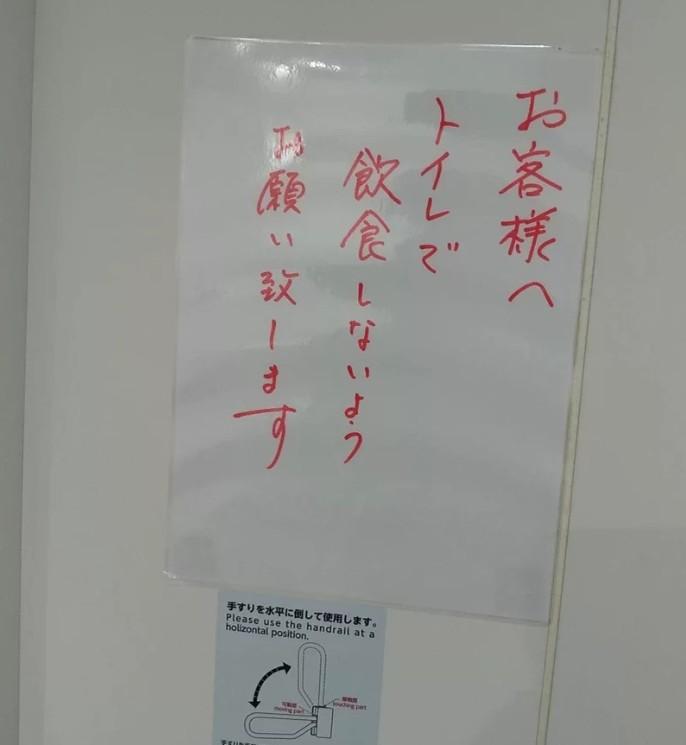 お客様へ
トイレで
飲食しないよう
お願い致します
手すりを水平に倒して使用します。
Please use the handrail at a
holizontal position.
可動部
moving part
接触部
touching part